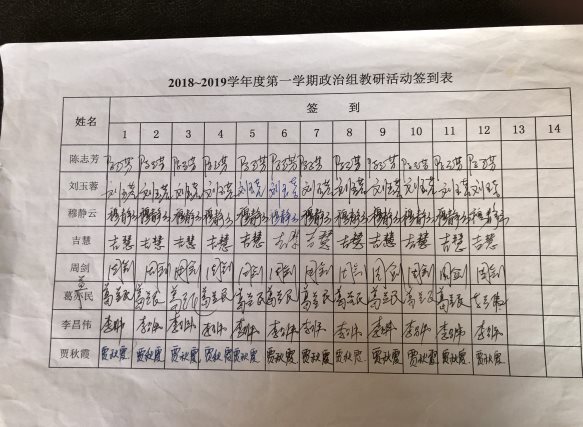 2018~2019学年度第一学期政治组教研活动签到表
姓名 签 到
1 2 3 4 5 6 7 8 9 10 11 12 13 14
陈志芳 陈志芳 陈志芳 陈志芳 陈志芳 陈志芳 陈志芳 陈志芳 陈志芳 陈志芳 陈志芳 陈志芳 陈志芳
刘玉蓉 刘玉蓉 刘玉蓉 刘玉蓉 刘玉蓉 刘玉蓉 刘玉蓉 刘玉蓉 刘玉蓉 刘玉蓉 刘玉蓉 刘玉蓉 刘玉蓉
穆静云 穆静云 穆静云 穆静云 穆静云 穆静云 穆静云 穆静云 穆静云 穆静云 穆静云 穆静云 穆静云
吉慧 吉慧 吉慧 吉慧 吉慧 吉慧 吉慧 吉慧 吉慧 吉慧 吉慧 吉慧 吉慧
周剑 周剑 周剑 周剑 周剑 周剑 周剑 周剑 周剑 周剑 周剑 周剑 周剑
盖
葛亦民 葛盖民 葛盖民 葛盖民 葛盖民 葛盖民 葛盖民 葛盖民 葛盖民 葛盖民 葛盖民 葛盖民
李昌伟 李昌伟 李昌伟 李昌伟 李昌伟 李昌伟 李昌伟 李昌伟 李昌伟 李昌伟 李昌伟 李昌伟 李昌伟
贾秋霞 贾秋霞 贾秋霞 贾秋霞 贾秋霞 贾秋霞 贾秋霞 贾秋霞 贾秋霞 贾秋霞 贾秋霞 贾秋霞 贾秋霞